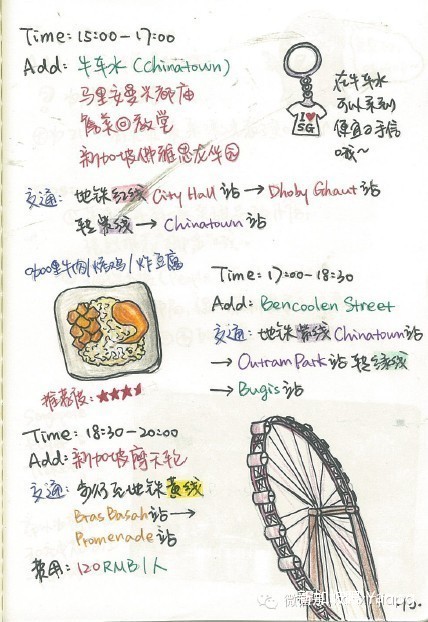 Time: 15:00-17:00
Add: 牛车水 (Chinatown)
马里安曼兴都庙
詹美回教堂
新加坡佛雅思龙华园
在牛车水
可以买到
便宜的手信
哦~
I ♥
SG
交通: 地铁红线 City Hall 站 → Dhoby Ghaut 站
转紫线 → Chinatown 站
牛肉/烧鸡/炸豆腐
推荐度: ★★★★
Time: 17:00-18:30
Add: Bencoolen Street
交通: 地铁紫线 Chinatown站
→ Outram Park 站 转绿线
→ Bugis 站
Time: 18:30-20:00
Add: 新加坡摩天轮
交通: 步行至地铁黄线
Bras Basah 站 →
Promenade 站
费用: 120RMB/人